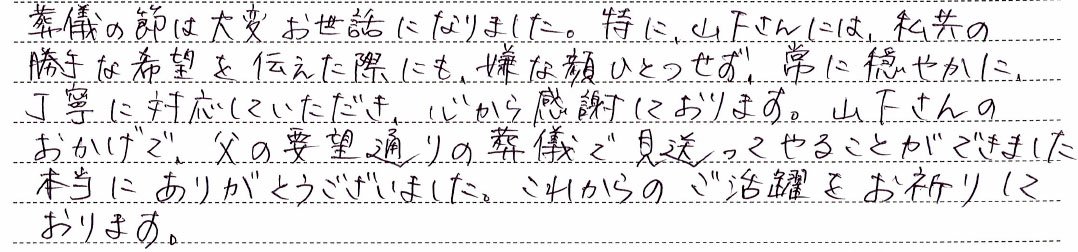 葬儀の節は大変お世話になりました。特に、山下さんには、私共の
勝手な希望を伝えた際にも、嫌な顔ひとつせず、常に穏やかに、
丁寧に対応していただき、心から感謝しております。山下さんの
おかげで、父の要望通りの葬儀で見送ってやることができました
本当にありがとうございました。これからのご活躍をお祈りして
おります。